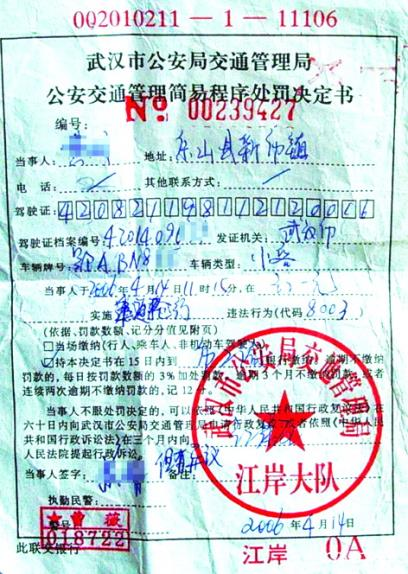 002010211-1-11106
武汉市公安局交通管理局
公安交通管理简易程序处罚决定书
No 00239427
编号:
当事人: 地址: 县新 镇
电话: 其他联系方式:
驾驶证:
驾驶证档案编号 42014090 发证机关: 武汉市
车辆牌号: 鄂A.BN8 车辆类型: 小客
当事人于2006年4月14日11时15分,在
实施 违法行为(代码8003)
(依据、罚款数额、记分分值见附页)
□当场缴纳(行人、乘车人、非机动车驾驶人)
☑持本决定书在15日内到 银行缴纳。逾期不缴纳
罚款的,每日按罚款数额的3%加处罚款。逾期3个月不缴纳罚款;或者
连续两次逾期不缴纳罚款的,记12分。
当事人不服处罚决定的,可以依照《中华人民共和国行政复议法》在
六十日内向武汉市公安局交通管理局申请行政复议;或者依照《中华人
民共和国行政诉讼法》在三个月内向
人民法院提起行政诉讼。
当事人签字: 但有异议 备注:
执勤民警:
黄薇
018722
警号:
2006年4月14日
此联交银行
江岸 0A
武汉市公安局交通管理局
江岸大队